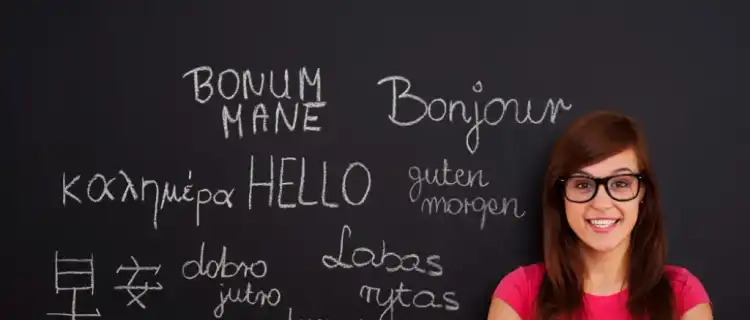 BONUM
MANE
Bonjour
καλημέρα
HELLO
guten
morgen
早安
dobro
jutro
Labas
rytas